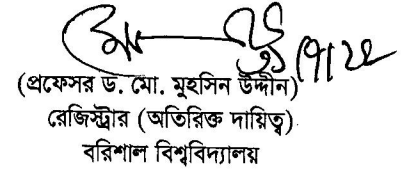 (প্রফেসর ড. মো. মুহসিন উদ্দীন)
রেজিস্ট্রার (অতিরিক্ত দায়িত্ব)
বরিশাল বিশ্ববিদ্যালয়